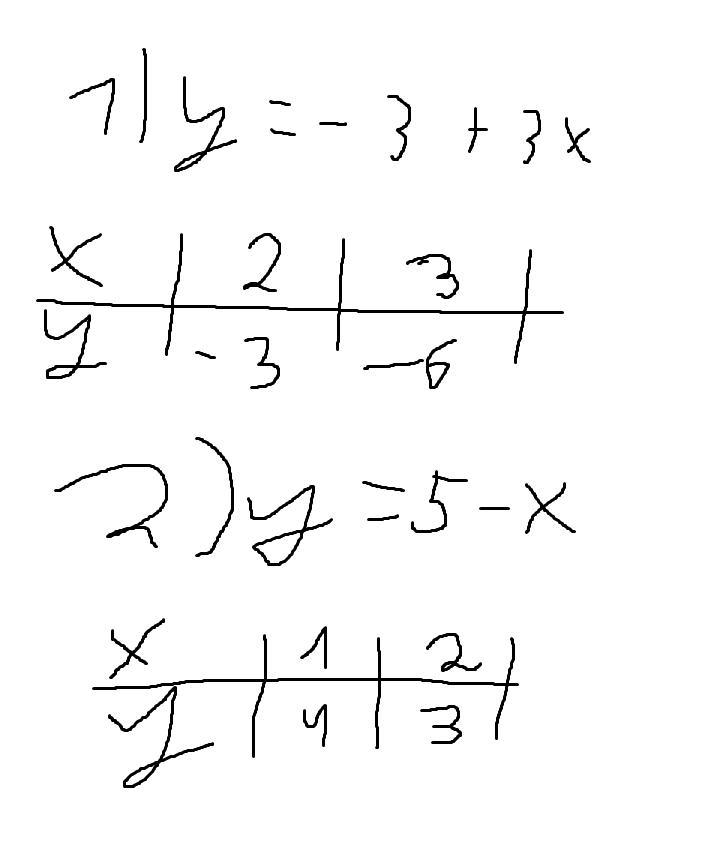 1) y = - 3 + 3x
x | 2 | 3 |
y | - 3 | - 6 |
2) y = 5 - x
x | 1 | 2 |
y | 4 | 3 |